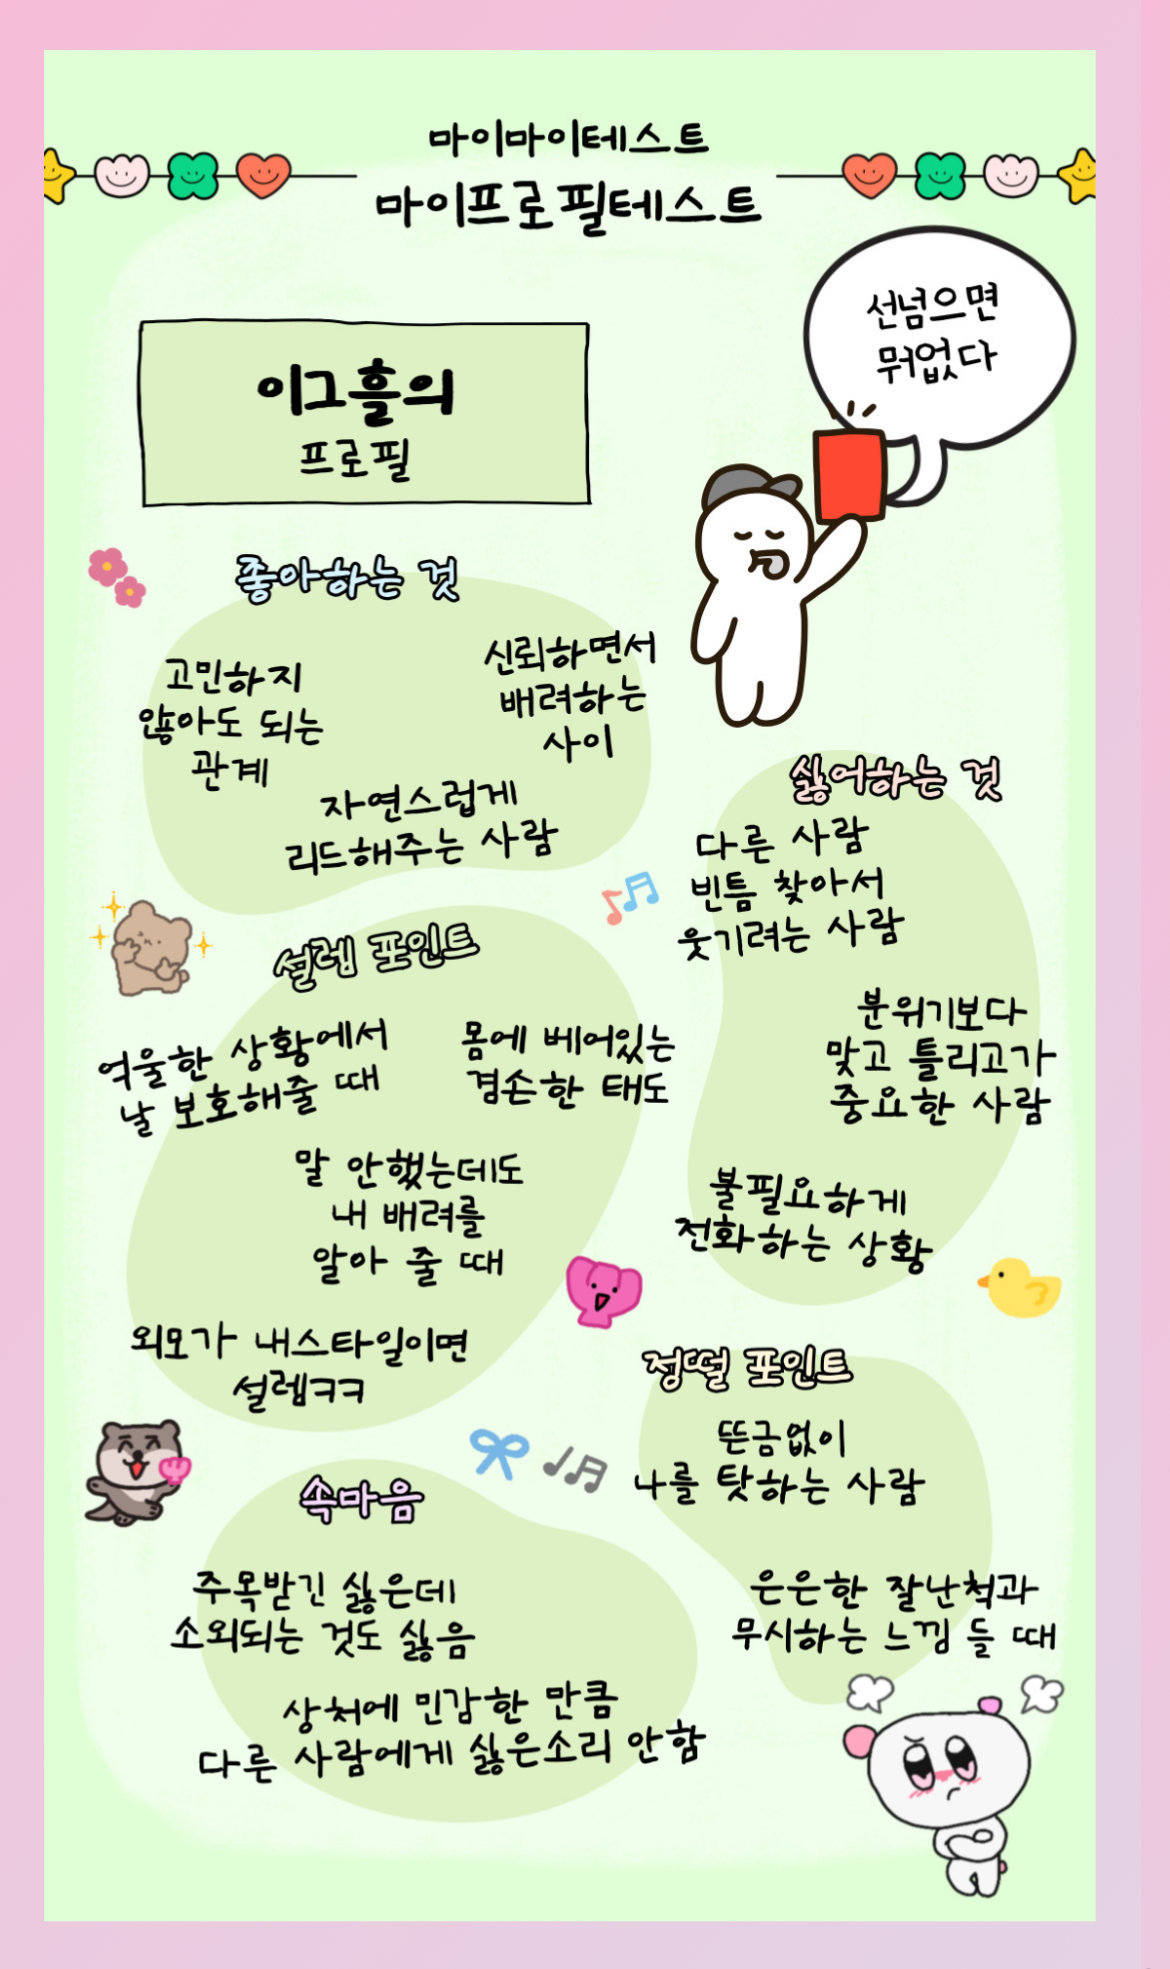 마이마이테스트
마이프로필테스트
선넘으면
뭐없다
이그흘의
프로필
좋아하는 것
고민하지
않아도 되는
관계
신뢰하면서
배려하는
사이
자연스럽게
리드해주는 사람
싫어하는 것
다른 사람
빈틈 찾아서
웃기려는 사람
분위기보다
맞고 틀리고가
중요한 사람
불필요하게
전화하는 상황
설렘 포인트
억울한 상황에서
날 보호해줄 때
몸에 베어있는
겸손한 태도
말 안했는데도
내 배려를
알아 줄 때
외모가 내스타일이면
설렘ㅋㅋ
정떨 포인트
뜬금없이
나를 탓하는 사람
은은한 잘난척과
무시하는 느낌 들 때
속마음
주목받긴 싫은데
소외되는 것도 싫음
상처에 민감한 만큼
다른 사람에게 싫은소리 안함